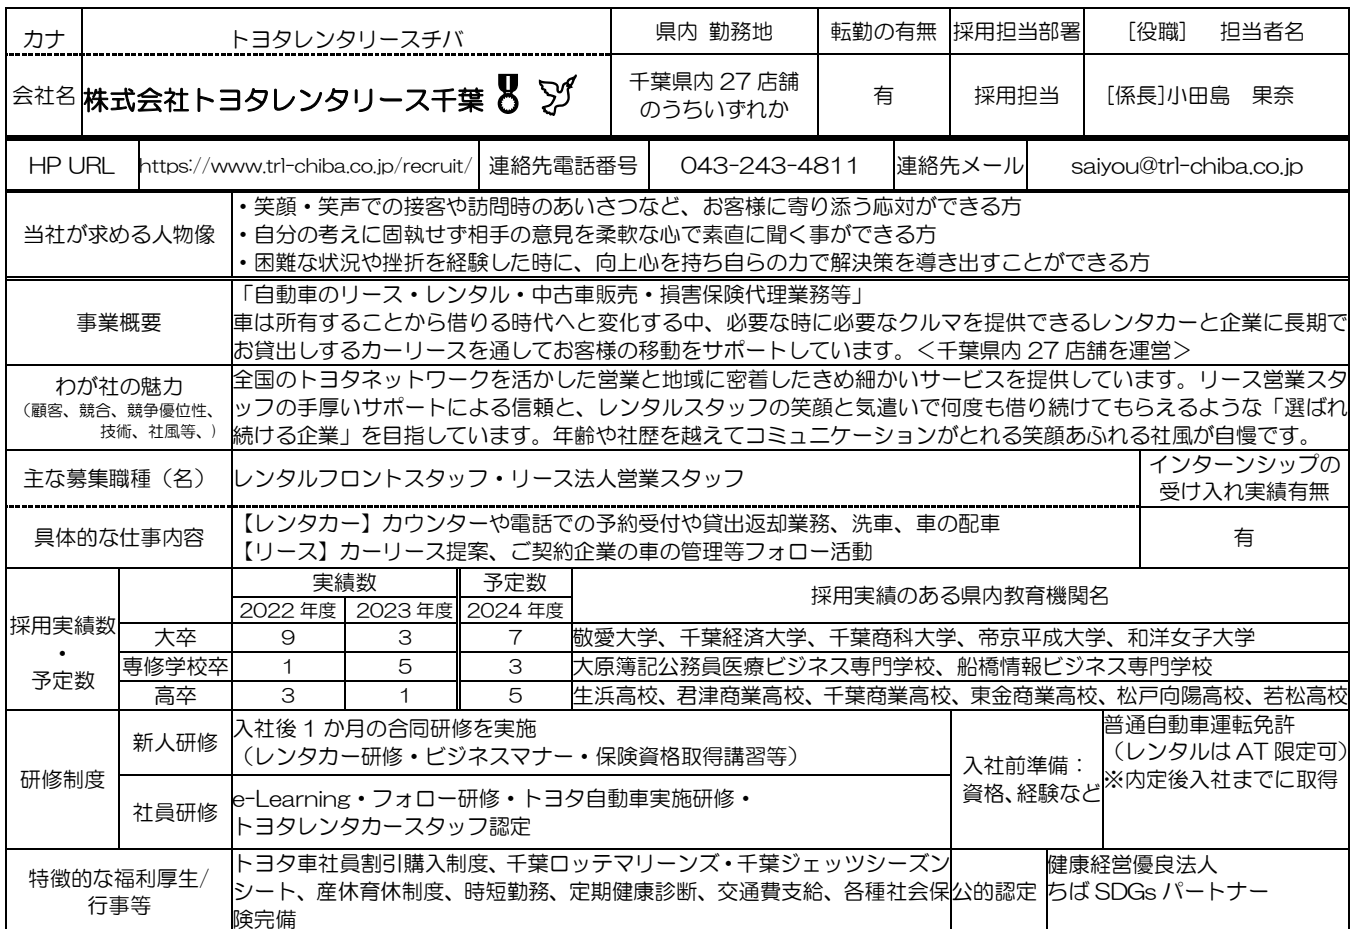 カナ トヨタレンタリースチバ 県内 勤務地 転勤の有無 採用担当部署 [役職] 担当者名
会社名 株式会社トヨタレンタリース千葉 千葉県内 27 店舗 有 採用担当 [係長]小田島 果奈
のうちいずれか
HP URL https://www.trl-chiba.co.jp/recruit/ 連絡先電話番号 043-243-4811 連絡先メール saiyou@trl-chiba.co.jp
当社が求める人物像
・笑顔・笑声での接客や訪問時のあいさつなど、お客様に寄り添う応対ができる方
・自分の考えに固執せず相手の意見を柔軟な心で素直に聞く事ができる方
・困難な状況や挫折を経験した時に、向上心を持ち自らの力で解決策を導き出すことができる方
事業概要
「自動車のリース・レンタル・中古車販売・損害保険代理業務等」
車は所有することから借りる時代へと変化する中、必要な時に必要なクルマを提供できるレンタカーと企業に長期で
お貸出しするカーリースを通してお客様の移動をサポートしています。<千葉県内 27 店舗を運営>
わが社の魅力
(顧客、競合、競争優位性、
技術、社風等、)
全国のトヨタネットワークを活かした営業と地域に密着したきめ細かいサービスを提供しています。リース営業スタ
ッフの手厚いサポートによる信頼と、レンタルスタッフの笑顔と気遣いで何度も借り続けてもらえるような「選ばれ
続ける企業」を目指しています。年齢や社歴を越えてコミュニケーションがとれる笑顔あふれる社風が自慢です。
主な募集職種(名) レンタルフロントスタッフ・リース法人営業スタッフ
インターンシップの
受け入れ実績有無
具体的な仕事内容
【レンタカー】カウンターや電話での予約受付や貸出返却業務、洗車、車の配車
【リース】カーリース提案、ご契約企業の車の管理等フォロー活動
有
採用実績数
・
予定数
実績数 予定数 採用実績のある県内教育機関名
2022 年度 2023 年度 2024 年度
大卒 9 3 7 敬愛大学、千葉経済大学、千葉商科大学、帝京平成大学、和洋女子大学
専修学校卒 1 5 3 大原簿記公務員医療ビジネス専門学校、船橋情報ビジネス専門学校
高卒 3 1 5 生浜高校、君津商業高校、千葉商業高校、東金商業高校、松戸向陽高校、若松高校
研修制度
新人研修
入社後 1 か月の合同研修を実施
(レンタカー研修・ビジネスマナー・保険資格取得講習等)
社員研修
e-Learning・フォロー研修・トヨタ自動車実施研修・
トヨタレンタカースタッフ認定
入社前準備:
資格、経験など
普通自動車運転免許
(レンタルは AT 限定可)
※内定後入社までに取得
特徴的な福利厚生/
行事等
トヨタ車社員割引購入制度、千葉ロッテマリーンズ・千葉ジェッツシーズン
シート、産休育休制度、時短勤務、定期健康診断、交通費支給、各種社会保
険完備
公的認定
健康経営優良法人
ちば SDGs パートナー